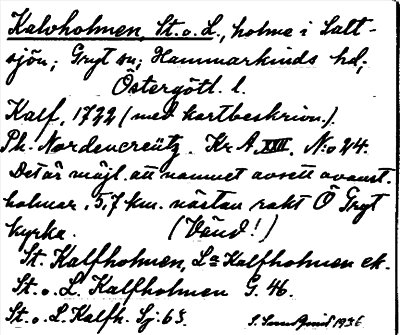 Kalvholmen, St. o. L., holme i Salt-
sjön; Gryt sn; Hammarkinds hd;
Östergötl. l.
Kalf, 1722 (med kartbeskrivn.).
Ph. Nordencreütz. Kr. A. XVII. N:o 24.
Det är möjl. att namnet avsett avanst.
holmar. 5,7 km. nästan rakt Ö Gryt
kyrka. (Vänd!)
St. Kalfholmen, La Kalfholmen ek.
St. o. L. Kalfholmen G. 46.
St. o. L. Kalfh. Sj. 63.
1936